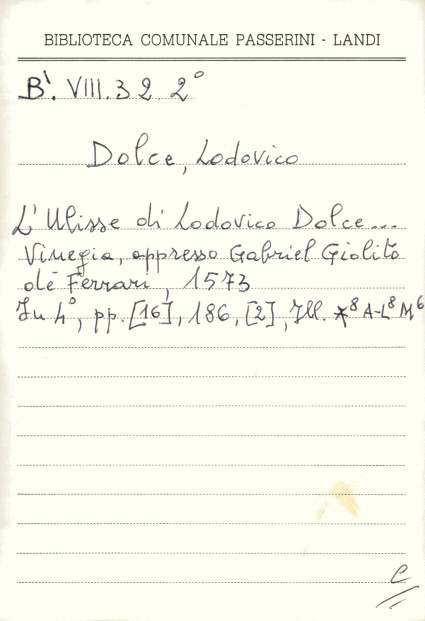 BIBLIOTECA COMUNALE PASSERINI - LANDI
B'. VIII. 32 2°
Dolce, Lodovico
L'Ulisse di Lodovico Dolce...
Vinegia, appresso Gabriel Giolito
de' Ferrari, 1573
In 4°, pp. [16], 186, [2], Ill. *⁸ A-L⁸ M⁶
C